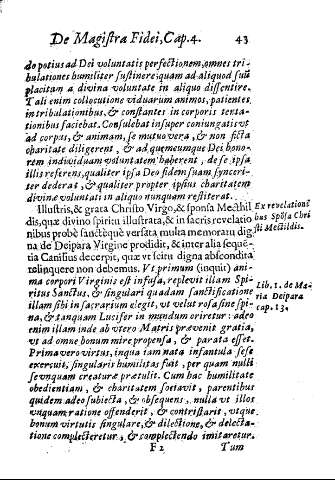 De Magistra Fidei, Cap. 4. 43
do potius ad Dei voluntatis perfectionem, omnes tri-
bulationes humiliter sustinere; quam ad aliquod suũ
placitum a divina voluntate in aliquo dissentire.
Tali enim collocutione viduarum animos, patientes
in tribulationibus, & constantes in corporis tenta-
tionibus faciebat. Consulebat insuper coniungatis vt
ad corpus, & animam, se mutuo vera, & non ficta
charitate diligerent, & ad quemcumque Dei hono-
rem individuam voluntatem haberent, de se ipsa
illis referens, qualiter ipsa Deo fidem suam synceri-
ter dederat, & qualiter propter ipsius charitatem
divinæ voluntati in aliquo nunquam restiterat.
Illustris, & grata Christo Virgo, & sponsa Mechtil
dis, quæ divino spiritu illustrata, & in sacris revelatio
nibus probè sanctèquè versata multa memoratu dig
na de Deipara Virgine prodidit, & inter alia sequẽ-
ria Canisius decerpit, quæ vt scitu digna abscondita
relinquere non debemus. Vt primum (inquit) ani-
ma corpori Virginis est infusa, replevit illam Spi-
ritus Sanctus, & singulari quadam sanctificatione
illam sibi in sacrarium elegit, vt velut rosa sine spi-
na, & tanquam Lucifer in mundum oriretur: adeo
enim illam inde ab vtero Matris prævenit gratia,
vt ad omne bonum mire propensa, & parata esset.
Prima vero virtus, in qua iam nata infantula sese
exercuit, singularis humilitas fuit, per quam nulli
se vnquam creaturæ prætulit. Cum hac humilitate
obedientiam, & charitatem sortavit, parentibus
quidem adeo subiecta, & obsequens, nulla vt illos
vnquam ratione offenderit, & contristarit, vtque
bonum virtutis singulare, & dilectione, & delecta-
tione complecteretur, & complectendo imitaretur.
F 2 Tum
Ex revelationi
bus Spõsa Chri
sti Mectildis.
Lib. 1. de Ma-
ria Deipara
cap. 13.